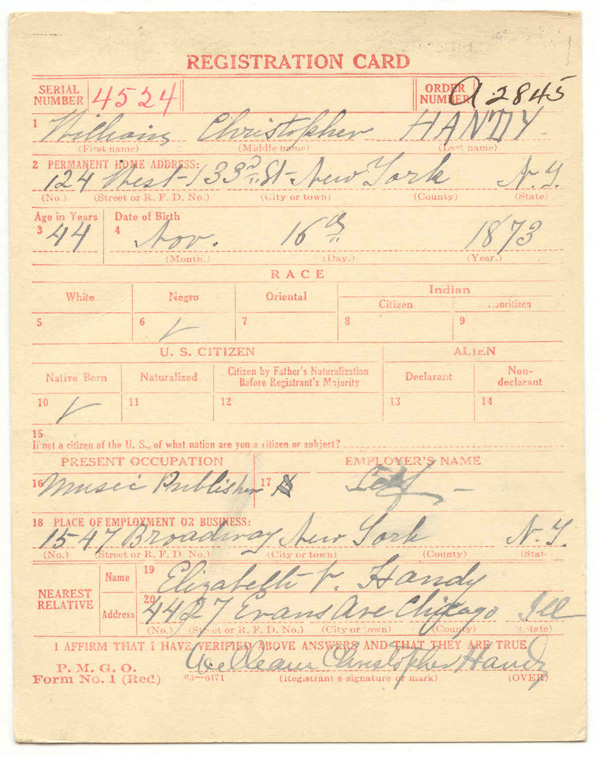 REGISTRATION CARD
SERIAL NUMBER 4524 ORDER NUMBER A 2845
1 William Christopher HANDY
(First name) (Middle name) (Last name)
2 PERMANENT HOME ADDRESS:
124 West 133rd St New York N.Y.
(No.) (Street or R. F. D. No.) (City or town) (County) (State)
Age in Years Date of Birth
3 44 4 Nov. 16th 1873
(Month.) (Day.) (Year.)
RACE
White Negro Oriental Indian
Citizen Noncitizen
5 6 ✓ 7 8 9
U. S. CITIZEN ALIEN
Native Born Naturalized Citizen by Father's Naturalization Before Registrant's Majority Declarant Non-declarant
10 ✓ 11 12 13 14
15
If not a citizen of the U. S., of what nation are you a citizen or subject?
PRESENT OCCUPATION EMPLOYER'S NAME
16 Music Publisher 17 Self
18 PLACE OF EMPLOYMENT OR BUSINESS:
1547 Broadway New York N.Y.
(No.) (Street or R. F. D. No.) (City or town) (County) (State)
NEAREST RELATIVE Name 19 Elizabeth V. Handy
Address 20 4427 Evans Ave Chicago Ill
(No.) (Street or R. F. D. No.) (City or town) (County) (State)
I AFFIRM THAT I HAVE VERIFIED ABOVE ANSWERS AND THAT THEY ARE TRUE
P. M. G. O.
Form No. 1 (Red) 03—6171 William Christopher Handy
(Registrant's signature or mark) (OVER)